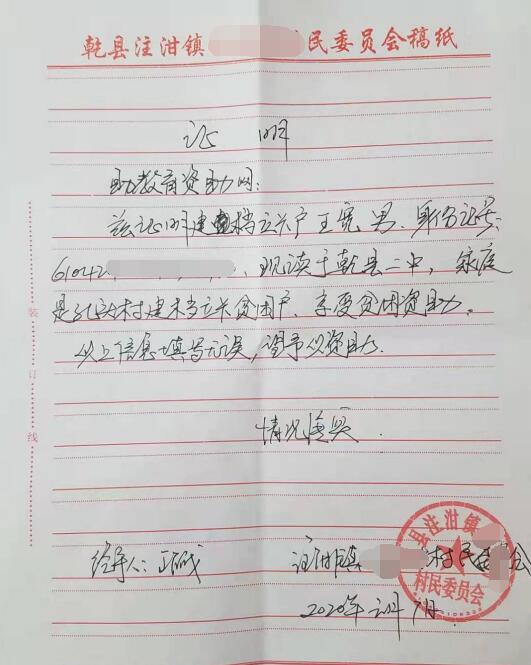 乾县注泔镇 民委员会稿纸
证 明
助教育资助网:
兹证明建档立卡户王宽 男、身份证号:
6104 现读于乾县二中,家庭
是我村建档立卡贫困户、享受贫困资助。
以上信息填写无误,请予以资助.
情况属实.
经手人:
注泔镇 村民委 会
2020年 月 日.
县注泔镇
村民委员会
装
订
线